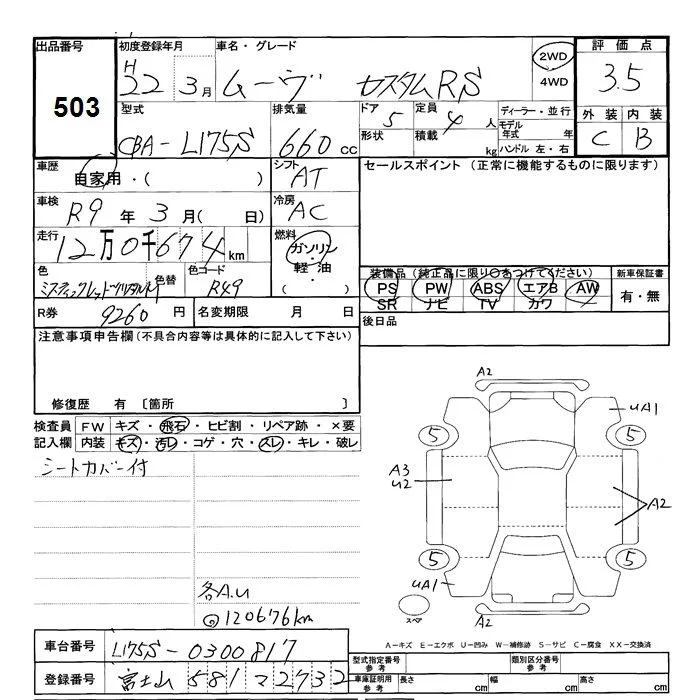 出品番号
503
初度登録年月
H
22 3月
車名・グレード
ムーヴ カスタムRS
2WD
4WD
評価点
3.5
外装 内装
C B
型式
CBA-L175S
排気量
660cc
ドア 5
形状
定員 4人
積載 kg
ディーラー・並行
モデル年式 年
ハンドル 左・右
車歴
自家用・( )
シフト
AT
セールスポイント (正常に機能するものに限ります)
車検
R9年 3月( 日)
冷房
AC
走行
12万0千674km
燃料
ガソリン
・
軽油
・
( )
色
色替
色コード
R49
装備品 (純正品に限り○をつけてください)
PS PW ABS エアB AW
SR ナビ TV カワ
新車保証書
有・無
R券 9260円
名変期限 月 日
後日品
注意事項申告欄(不具合内容等は具体的に記入して下さい)
修復歴 有 〔箇所 〕
検査員
記入欄
FW キズ・飛石・ヒビ割・リペア跡・×要
内装 キズ・汚レ・コゲ・穴・スレ・キレ・破レ
シートカバー付
各A.U
◎120676km
A2
UA1
5
5
A3
U2
A2
5
5
UA1
スペア
A2
A-キズ E-エクボ U-凹み W-補修跡 S-サビ C-腐食 XX-交換済
車台番号
L175S-0300817
登録番号
富士山 581 マ 2732
型式指定番号
参考
類別区分番号
参考
車庫証明用
参考
長さ cm
幅 cm
高さ cm